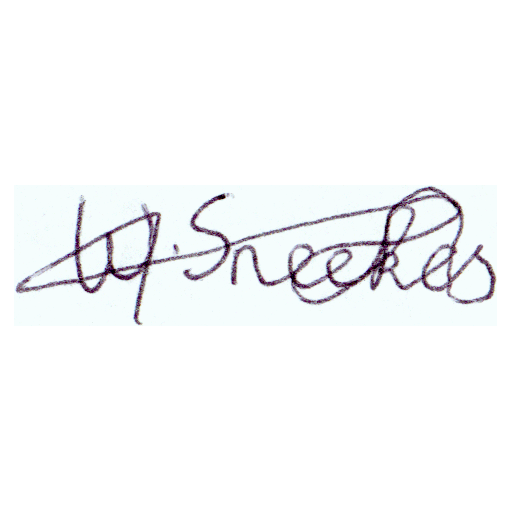 W. Sneekes